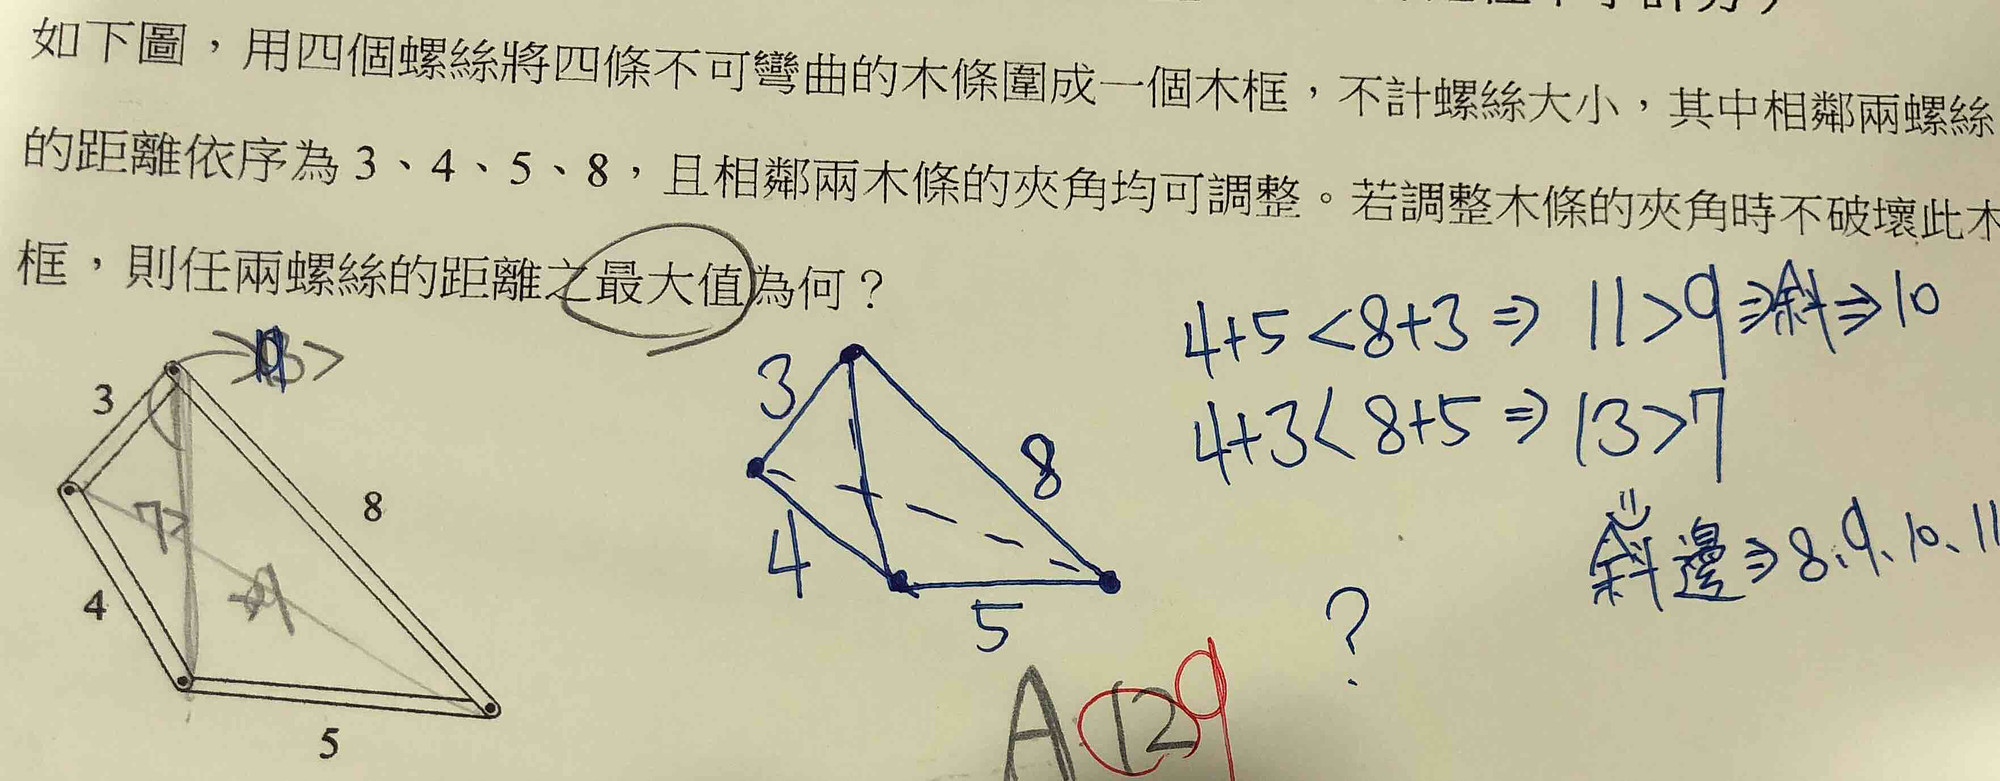 如下圖，用四個螺絲將四條不可彎曲的木條圍成一個木框，不計螺絲大小，其中相鄰兩螺絲
的距離依序為3、4、5、8，且相鄰兩木條的夾角均可調整。若調整木條的夾角時不破壞此木
框，則任兩螺絲的距離之最大值為何？
4+5<8+3⇒ 11>9⇒斜⇒10
4+3<8+5⇒ 13>7
斜邊⇒8、9、10、11
3
8
7>
9
4
5
3
8
4
5
?
A 12 9